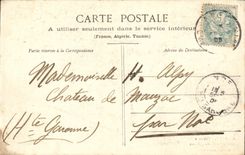 CARTE POSTALE
A utiliser seulement dans le service intérieur
(France, Algérie, Tunisie)
Partie réservée à la Correspondance
Adresse du Destinataire
Mademoiselle H. Alpy
Chateau de Mauzac
par Noé
(Hte Garonne)